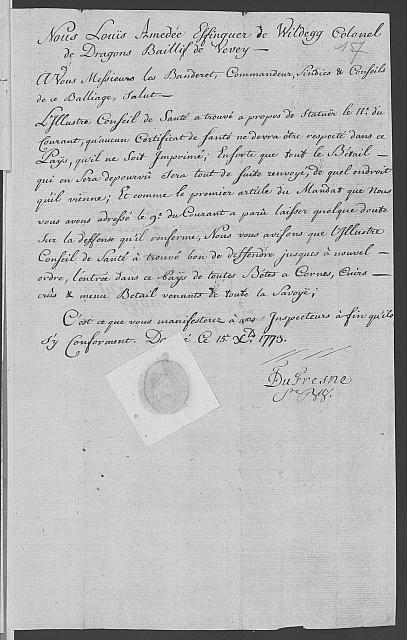 Nous Louis Amedée Effinguer de Wildegg Colonel
157
de Dragons Baillif de Vevey —
A Vous Messieurs les Banderet, Commandeur, Sindics & Conseils
de ce Balliage, Salut —
L'Illustre Conseil de Santé a trouvé a propos de Statuër le 11e. du
Courant, qu'aucun Certificat de santé ne devra être respecté dans ce
Païs, qu'il ne Soit Imprimé; Ensorte que tout le Bétail —
qui en Sera depourvû Sera tout de suite renvoyé, de quel endroit
qu'il vienne; Et comme le premier article du Mandat que Nous
vous avons adressé le 9e. du Courant a parû laisser quelque doute
Sur la deffense qu'il renferme, Nous vous avisons que l'Illustre
Conseil de Santé à trouvé bon de deffendre jusques à nouvel —
ordre, l'entrée dans ce païs de toutes Bêtes a Cornes, Cuirs —
crûs & menu Betail venants de toute la Savoye;
C'est ce que vous manifesterez à vos Inspecteurs à fin qu'ils
s'y Conforment. Do é Ce 15e. Xbre. 1773.
DuFresne